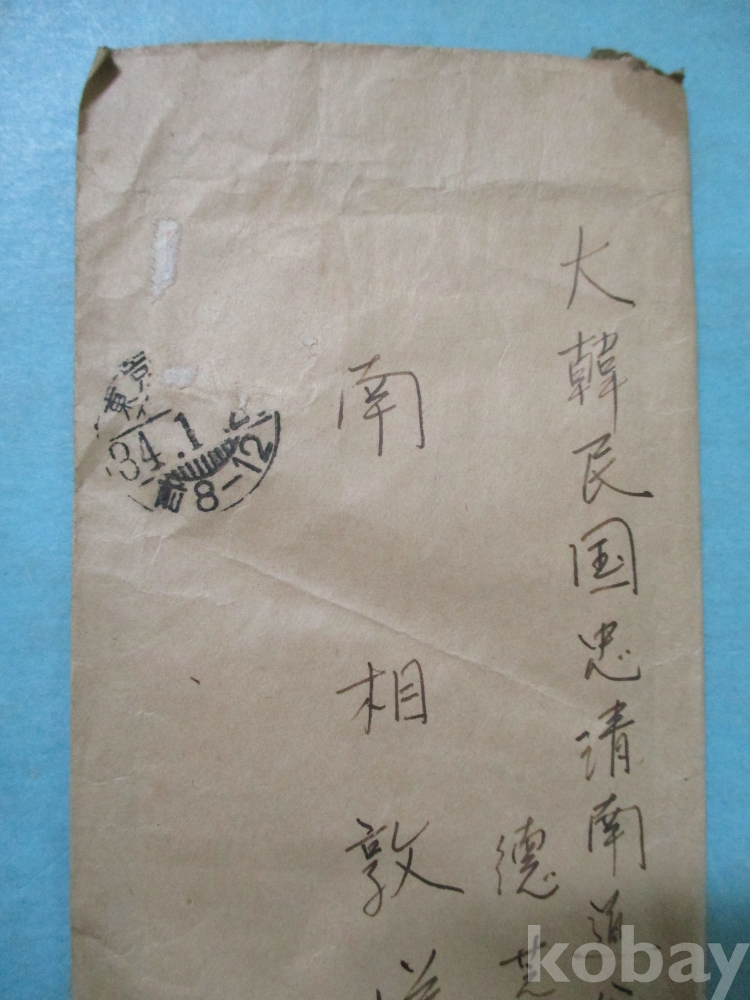 大韓民国忠清南道
德
南相敦
東京
34.1
8-12
kobay